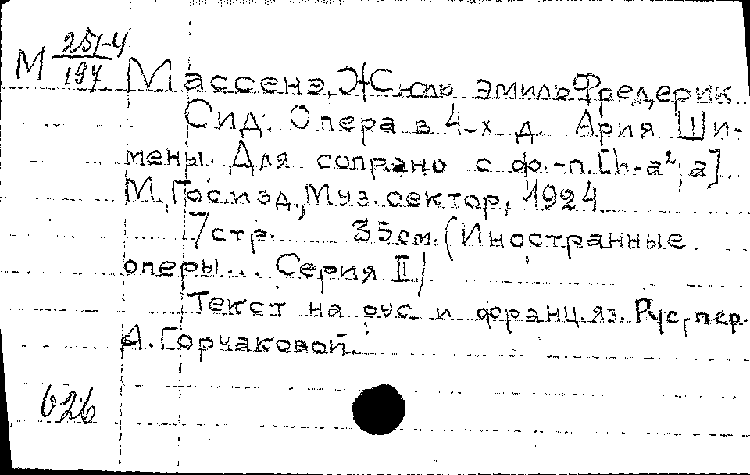 М 251-4
197
Массенэ, Жюль Эмиль Фредерик
Сид. Опера в 4-х д. Ария Ши-
мены. Для сопрано с ф.-п. [h-a², a].
М., Госизд., Муз. сектор, 1924
7 стр. 35 см. (Иностранные
оперы... Серия II)
Текст на рус и франц. яз. Рус, пер.
А. Горчаковой.
626